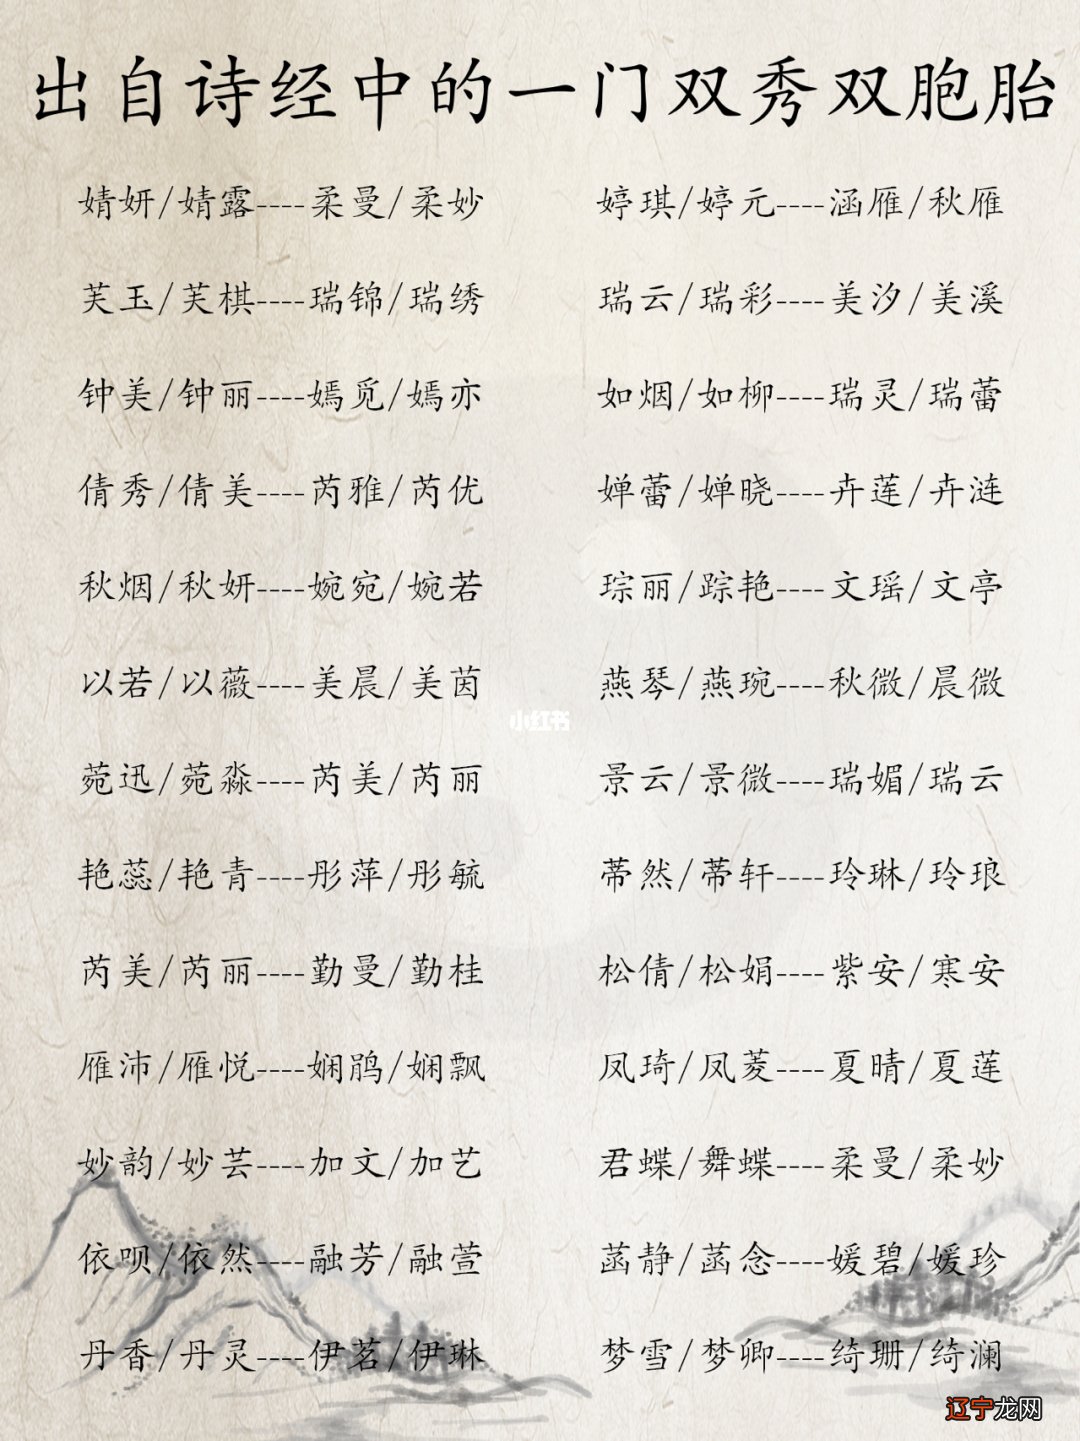 出自诗经中的一门双秀双胞胎
婧妍/婧露----柔曼/柔妙 婷琪/婷元----涵雁/秋雁
芙玉/芙棋----瑞锦/瑞绣 瑞云/瑞彩----美汐/美溪
钟美/钟丽----嫣觅/嫣亦 如烟/如柳----瑞灵/瑞蕾
倩秀/倩美----芮雅/芮优 婵蕾/婵晓----卉莲/卉涟
秋烟/秋妍----婉宛/婉若 琮丽/踪艳----文瑶/文亭
以若/以薇----美晨/美茵 燕琴/燕琬----秋微/晨微
小红书
菀迅/菀淼----芮美/芮丽 景云/景微----瑞媚/瑞云
艳蕊/艳青----彤萍/彤毓 蒂然/蒂轩----玲琳/玲琅
芮美/芮丽----勤曼/勤桂 松倩/松娟----紫安/寒安
雁沛/雁悦----娴鹃/娴飘 凤琦/凤菱----夏晴/夏莲
妙韵/妙芸----加文/加艺 君蝶/舞蝶----柔曼/柔妙
依呗/依然----融芳/融萱 菡静/菡念----媛碧/媛珍
丹香/丹灵----伊茗/伊琳 梦雪/梦卿----绮珊/绮澜
辽宁龙网